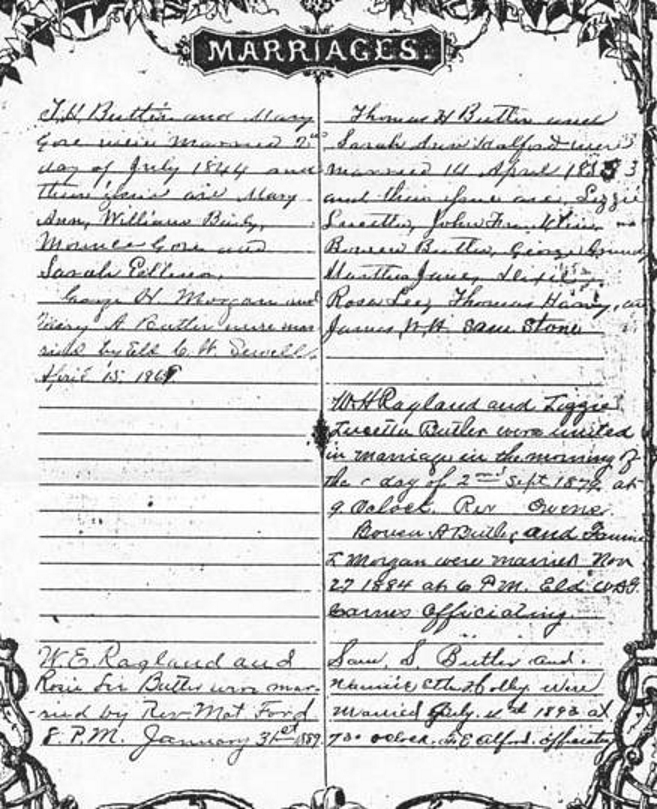 MARRIAGES.
T. H. Butler and Mary
Gore were married 2nd
day of July 1844 and
their issue are Mary
Ann, William
Gore and
Sarah
George H. Morgan and
Mary A. Butler were mar
ried by Eld C. W. Sewell
April 15. 186
Thomas H Butler and
Sarah Ann Halford were
married 14 April 185 3
and their Issue are, Lizzie
Lucetta, John Franklin,
Bowen Butler, George
Martha Jane,
Rosa Lee, Thomas
James, W. H. Sam Stone
W. H Ragland and Lizzie
Lucetta Butler were united
in marriage in the morning of
the day of 2nd Sept 187 at
9. Oclock. Rev
Bowen A Butler, and
L Morgan were married Nov
27 1884 at 6 P.M. Eld
Barnes Officiating.
W. E. Ragland and
Rosie Butler were mar-
-ried by Rev. Mat. Ford
8. P.M. January 31st 1889
Sam. S. Butler and.
Nannie Holly were
married July 1893 at
730 oclock. Alford. officiating